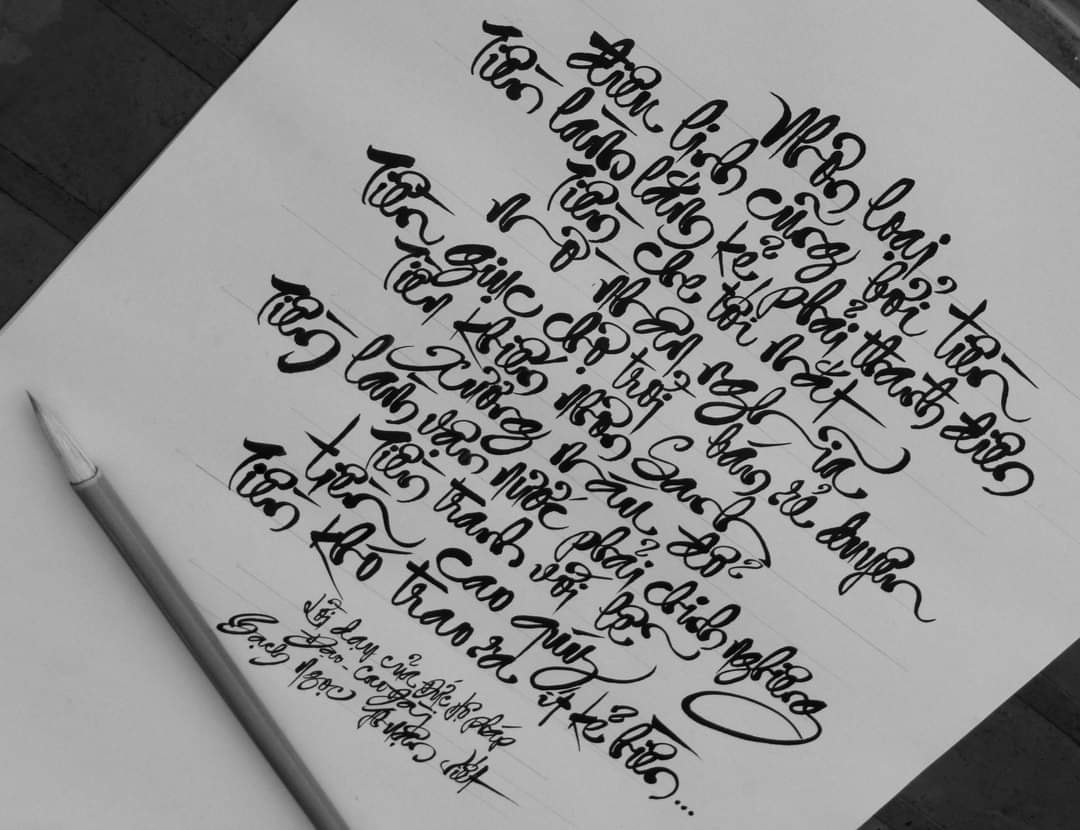 Nhơn loại
điên linh cũng bởi tiền
Tiền làm lắm kẻ phải thành điên
Tiền che tối mắt
mờ nhân nghĩa
Tiền giục chợ trời bán rẻ duyên
Tiền khiến nhơn sanh
Xương máu đổ
Tiền làm vận nước phải chinh nghiêng
Tiền tranh với
tiền cao quí
Tiền khó trao ra ít kẻ hiền...
Lời dạy của Đức Hộ Pháp
Đạo Cao Đài
Gạch Ngọc viết